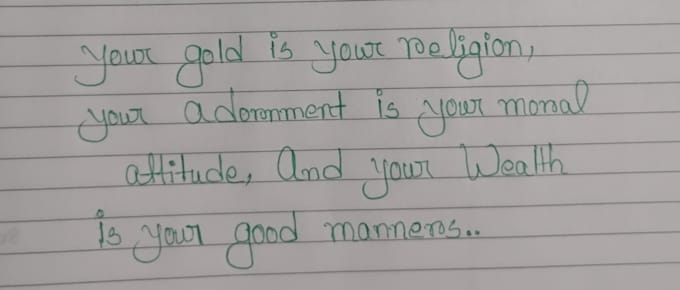 your gold is your religion,
your adornment is your moral
attitude, And your Wealth
is your good manners..